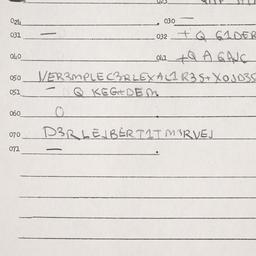 024 030 —
031 — 032 + Q G1DER
040 042 +Q A GAJC
050 VER3MPLEC3RLEXAL1R3S+XOJD3S
052 — Q KEG+DEM
060 O
070 D3RLEJBERT1TM3RVEJ
072 —